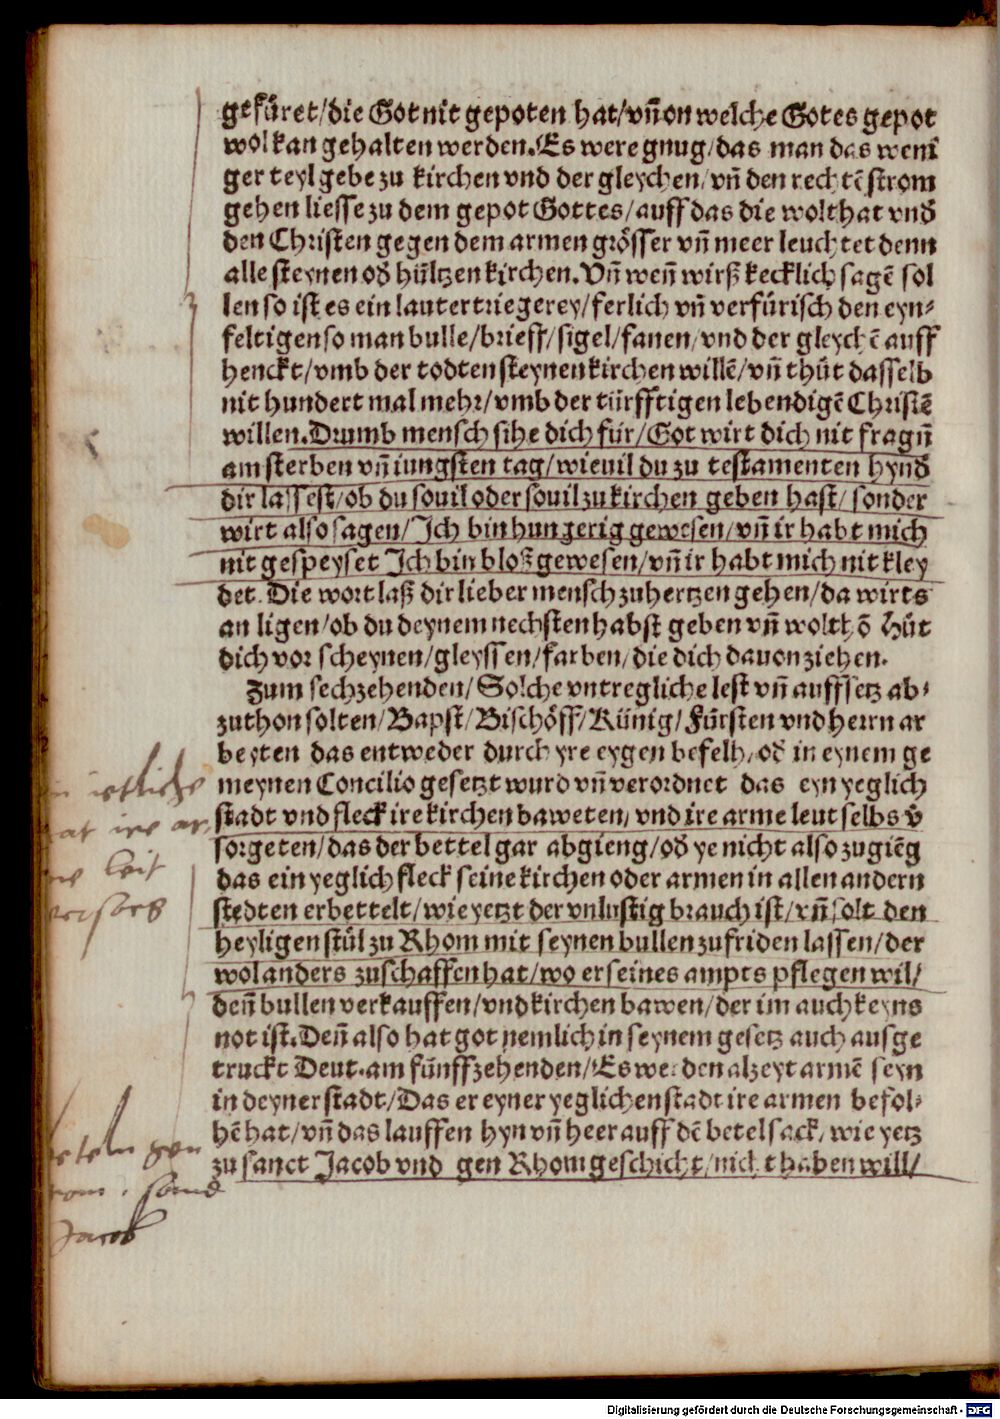 gefüret/die Got nit gepoten hat/vñ on welche Gotes gepot
wol kan gehalten werden. Es were gnug/das man das weni
ger teyl gebe zu kirchen vnd der gleychen/vñ den rechtē strom
gehen liesse zu dem gepot Gottes/auff das die wolthat vnd
den Christen gegen dem armen grösser vñ meer leuchtet denn
alle steynen od hültzen kirchen. Vñ weñ wirß kecklich sagē sol
len so ist es ein lauter triegerey/ferlich vñ verfürisch den eyn⸗
feltigen so man bulle/brieff/sigel/fanen/vnd der gleychē auff
henckt/vmb der todten steynen kirchen willē/vñ thůt dasselb
nit hundert mal mehr/vmb der türfftigen lebendigē Christē
willen. Drumb mensch sihe dich für/Got wirt dich nit fragñ
am sterben vñ iungsten tag/wieuil du zu testamenten hynd
dir lassest/ob du souil oder souil zu kirchen geben hast/sonder
wirt also sagen/Ich bin hungerig gewesen/vñ ir habt mich
nit gespeyset Ich bin bloß gewesen/vñ ir habt mich nit kley
det. Die wort laß dir lieber mensch zu hertzen gehen/da wirts
an ligen/ob du deynem nechsten habst geben vñ wolthō Hüt
dich vor scheynen/gleyssen/farben/die dich dauon ziehen.
Zum sechzehenden/Solche vntregliche lest vñ auffsetz ab⸗
zuthon solten/Bapst/Bischöff/Künig/Fürsten vnd herrn ar
beyten das entweder durch yre eygen befelh/od in eynem ge
meynen Concilio gesetzt wurd vñ verordnet das eyn yeglich
stadt vnd fleck ire kirchen baweten/vnd ire arme leut selbs v̄
sorgeten/das der bettel gar abgieng/od ye nicht also zugiēg
das ein yeglich fleck seine kirchen oder armen in allen andern
stedten erbettelt/wie yetzt der vnlustig brauch ist/vñ solt den
heyligen stůl zu Rhom mit seynen bullen zufriden lassen/der
wol anders zuschaffen hat/wo er seines ampts pflegen wil/
deñ bullen verkauffen/vnd kirchen bawen/der im auch keyns
not ist. Deñ also hat got nemlich in seynem gesetz auch ausge
truckt Deut. am fünffzehenden/Es werden alzeyt armē seyn
in deyner stadt/Das er eyner yeglichen stadt ire armen befol⸗
hē hat/vñ das lauffen hyn vñ heer auff dē betelsack/wie yetz
zu sanct Jacob vnd gen Rhom geschicht/nicht haben will/
ietliche
at ire ar
leit
versorg
betem gen
rom. sand
Jacob
Digitalisierung gefördert durch die Deutsche Forschungsgemeinschaft - DFG